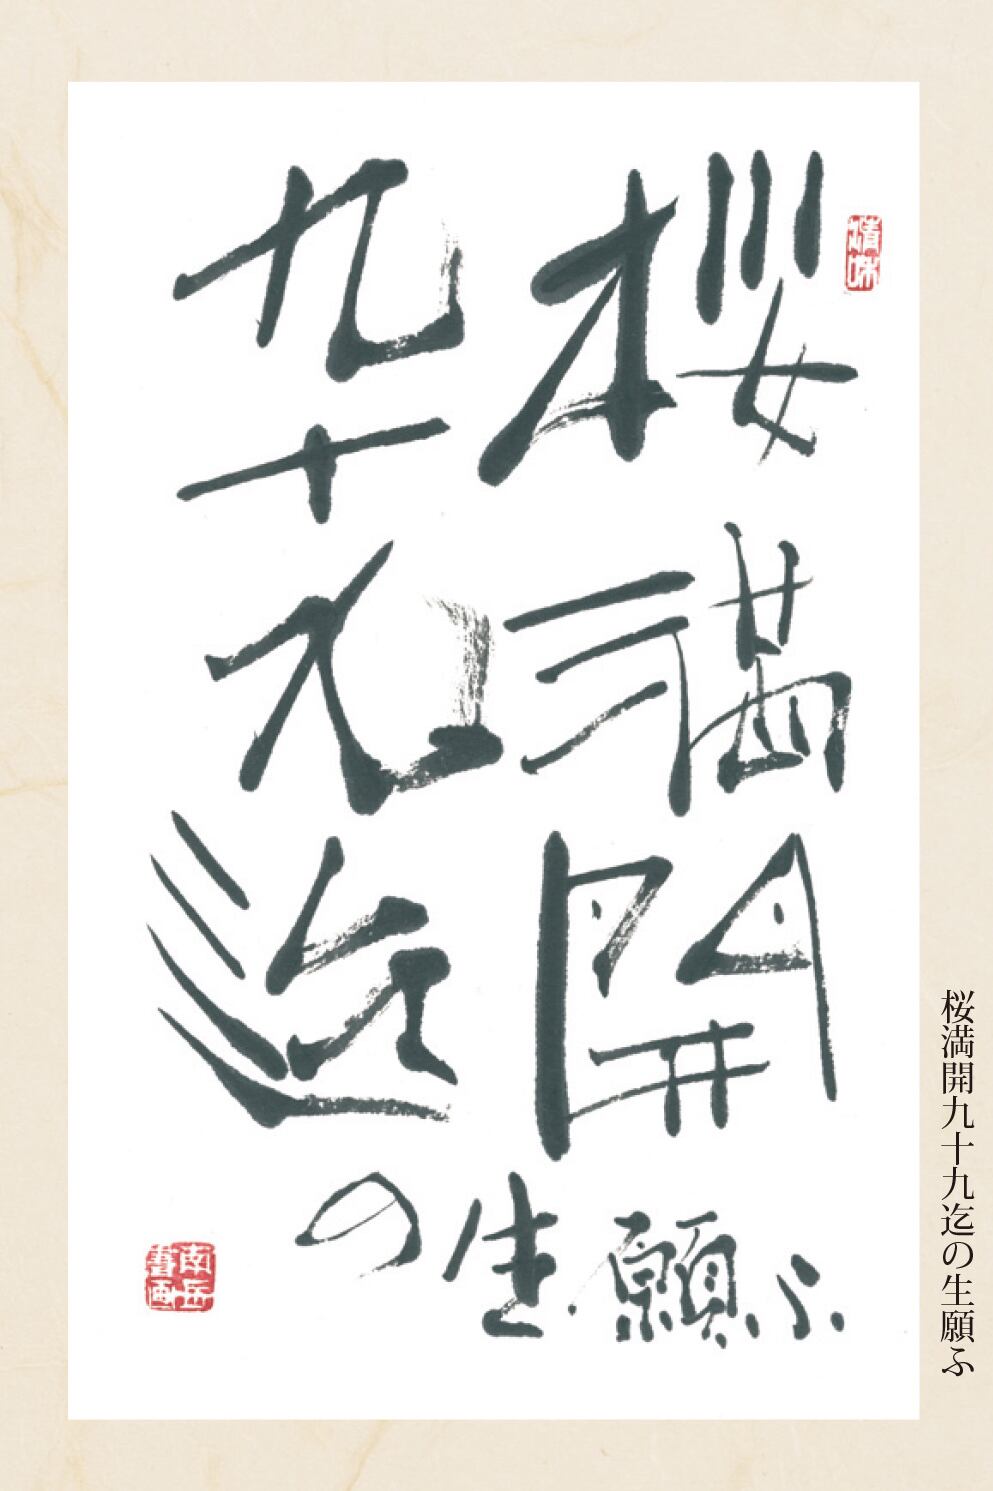 桜満開
九十九迄
の生願ふ
清味
南岳
書画
桜満開九十九迄の生願ふ